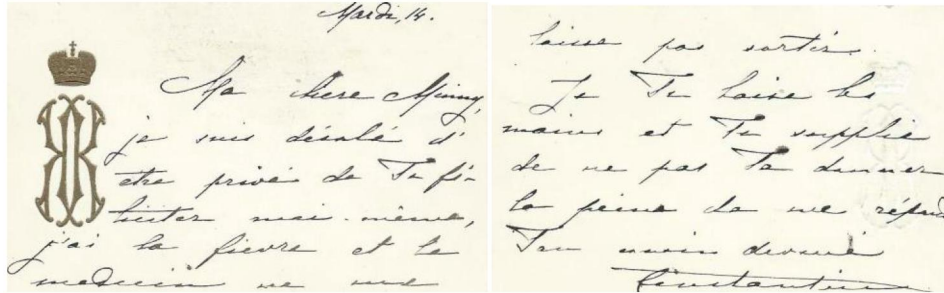 Mardi, 14.
Ma chere Minny,
je suis désolé d'
etre privé de Te fé-
liciter moi-même,
j'ai la fievre et le
medecin ne me
laisse pas sortir.
Je Te baise les
mains et Te supplie
de ne pas Te donner
la peine de me répond
Ton cousin devoué
Constantin